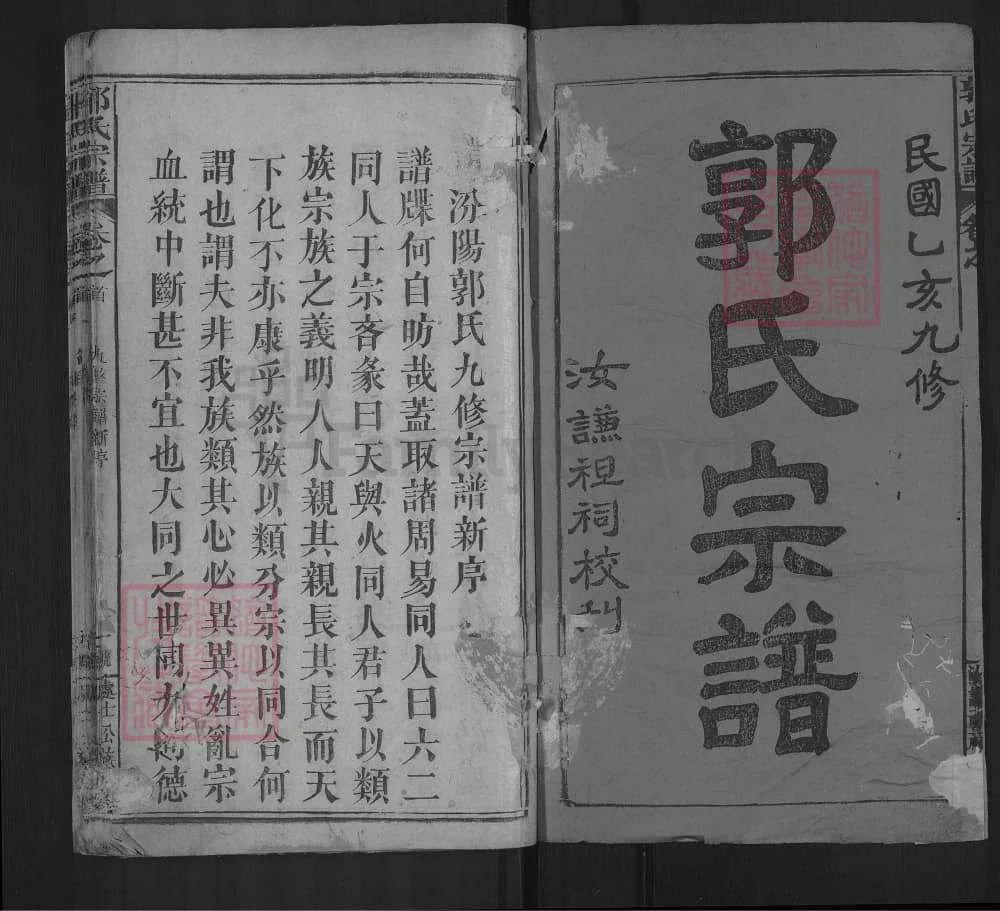 民國乙亥九修
郭氏宗譜
汝謙祖祠校刋
汾陽郭氏九修宗譜新序
譜牒何自昉哉蓋取諸周易同人曰六二
同人于宗吝彖曰天與火同人君子以類
族宗族之義明人人親其親長其長而天
下化不亦康乎然族以類分宗以同合何
謂也謂夫非我族類其心必異異姓亂宗
血統中斷甚不宜也大同之世同亦通德
郭氏宗譜 卷之首 九修宗譜新序